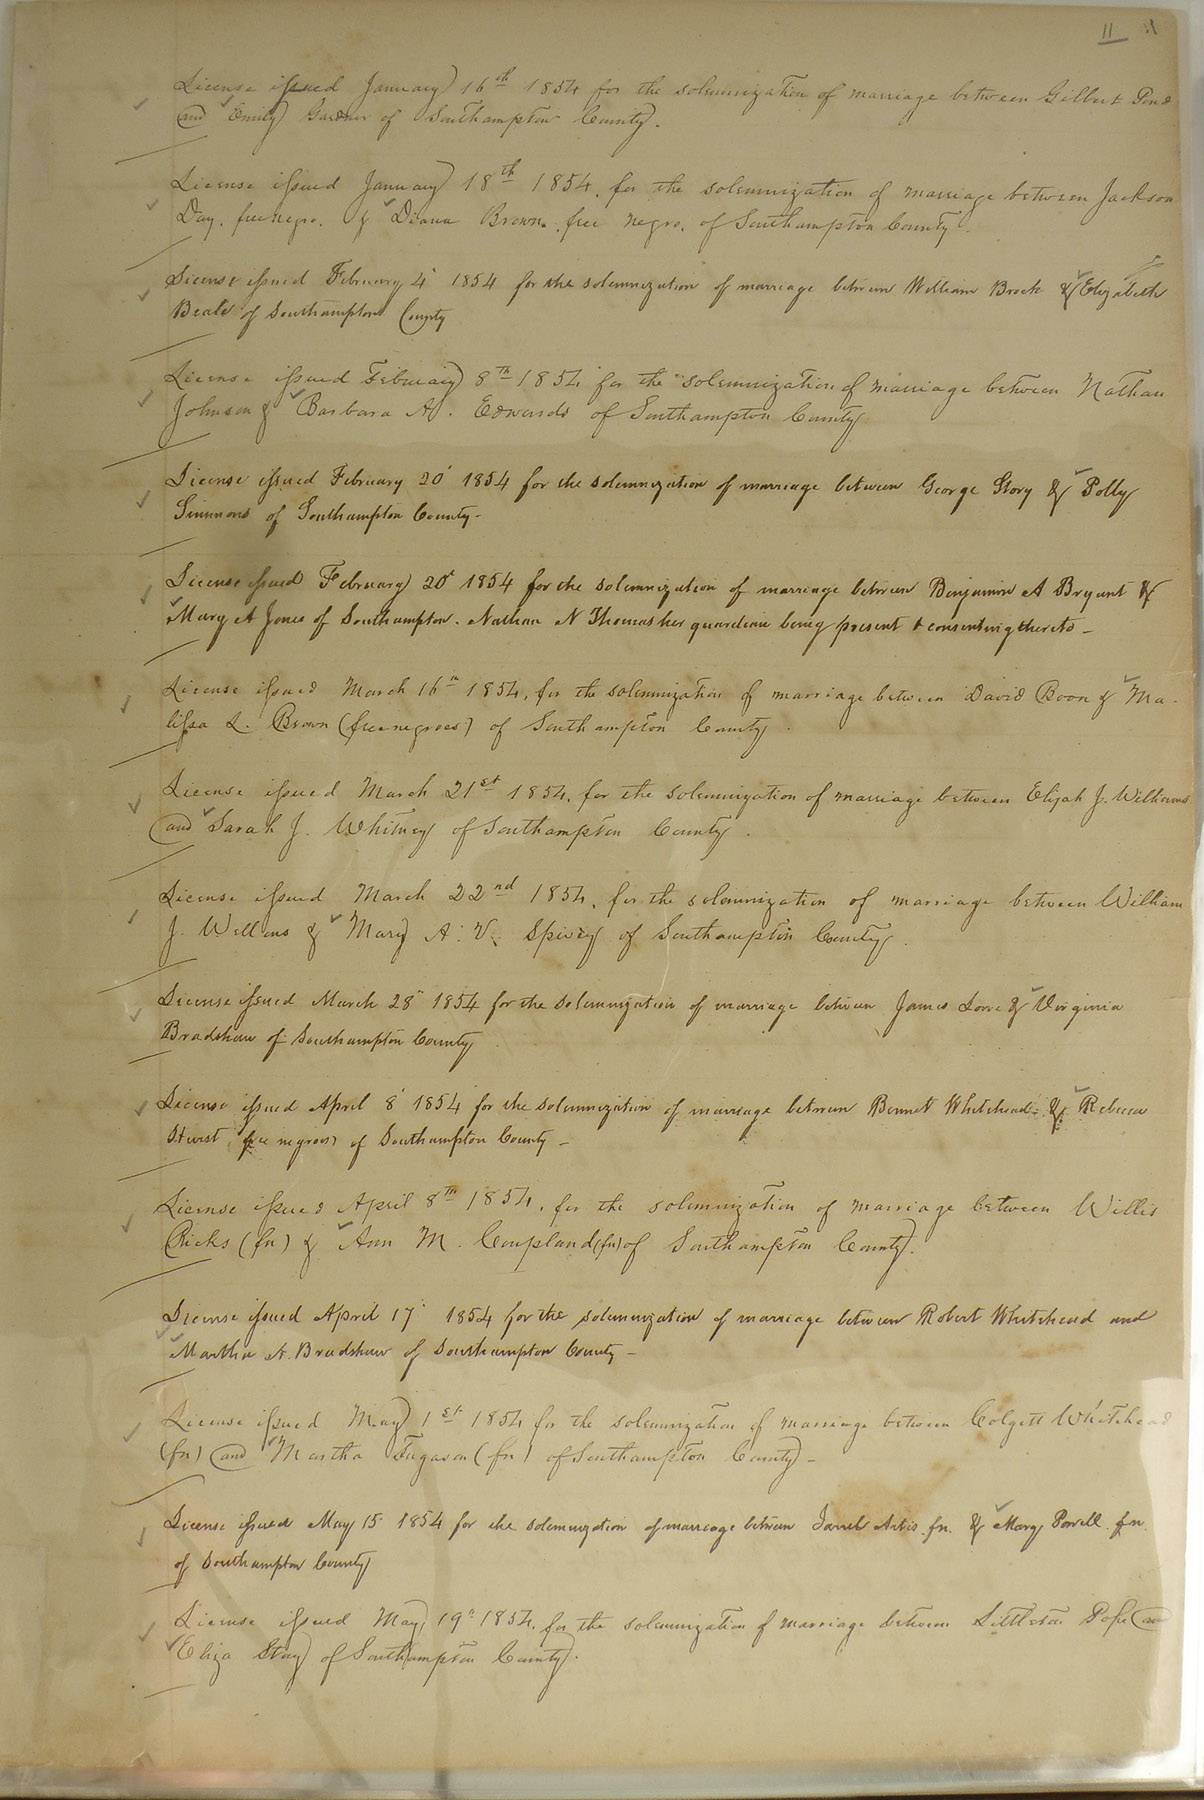 11
License issued January 16th 1854 for the solemnization of marriage between Gilbert Pond
and Emily Gardner of Southampton County.
License issued January 18th 1854, for the solemnization of marriage between Jackson
Day, free negro. & Diana Brown. free negro, of Southampton County.
License issued February 4' 1854 for the solemnization of marriage between William Brock & Elizabeth
Beale of Southampton County
License issued February 8th 1854 for the solemnization of marriage between Nathan
Johnson & Barbara A. Edwards of Southampton County
License issued February 20' 1854 for the solemnization of marriage between George Story & Polly
Simmons of Southampton County-
License issued February 20' 1854 for the solemnization of marriage between Benjamin A Bryant &
Mary A Jones of Southampton. Nathan N Thomas her guardian being present & consenting thereto-
License issued March 16th 1854, for the solemnization of marriage between David Boon & Ma-
lissa L. Brown (free negroes) of Southampton County.
License issued March 21st 1854, for the solemnization of marriage between Elijah J. Williams
and Sarah J. Whitney of Southampton County.
License issued March 22nd 1854, for the solemnization of marriage between William
J. Wellons & Mary A. V. Spivey of Southampton County.
License issued March 28" 1854 for the solemnization of marriage between James Lowe & Virginia
Bradshaw of Southampton County
License issued April 8' 1854 for the solemnization of marriage between Bennet Whitehead & Rebecca
Hurst free negroes of Southampton County-
License issued April 8th 1854, for the solemnization of marriage between Willis
Ricks (fn) & Ann M. Coupland (fn) of Southampton County.
License issued April 17' 1854 for the solemnization of marriage between Robert Whitehead and
Martha A. Bradshaw of Southampton County-
License issued May 1st 1854 for the solemnization of marriage between Colgett Whitehead
(fn) and Martha (fn) of Southampton County-
License issued May 15 1854 for the solemnization of marriage between Artis fn. & Mary Powell. fn.
of Southampton County
License issued May 19th 1854, for the solemnization of marriage between Littleton Pope and
Eliza of Southampton County.